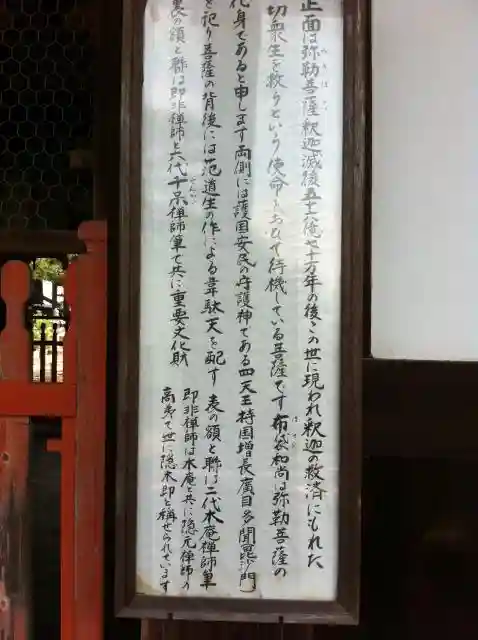 正面は弥勒菩薩釈迦滅後五十六億七千万年の後この世に現われ釈迦の救済にもれた
切衆生を救うという使命をおびて待機している菩薩です布袋和尚は弥勒菩薩の
化身であると申します両側には護国安民の守護神である四天王持国増長廣目多聞毘沙門
を祀り菩薩の背後には范道生の作による韋駄天を配す 表の額と聯は二代木庵禅師筆
裏の額と聯は即非禅師と六代千呆禅師筆で共に重要文化財
即非禅師は木庵と共に隠元禅師の
高弟で世に隠木即と稱せられています